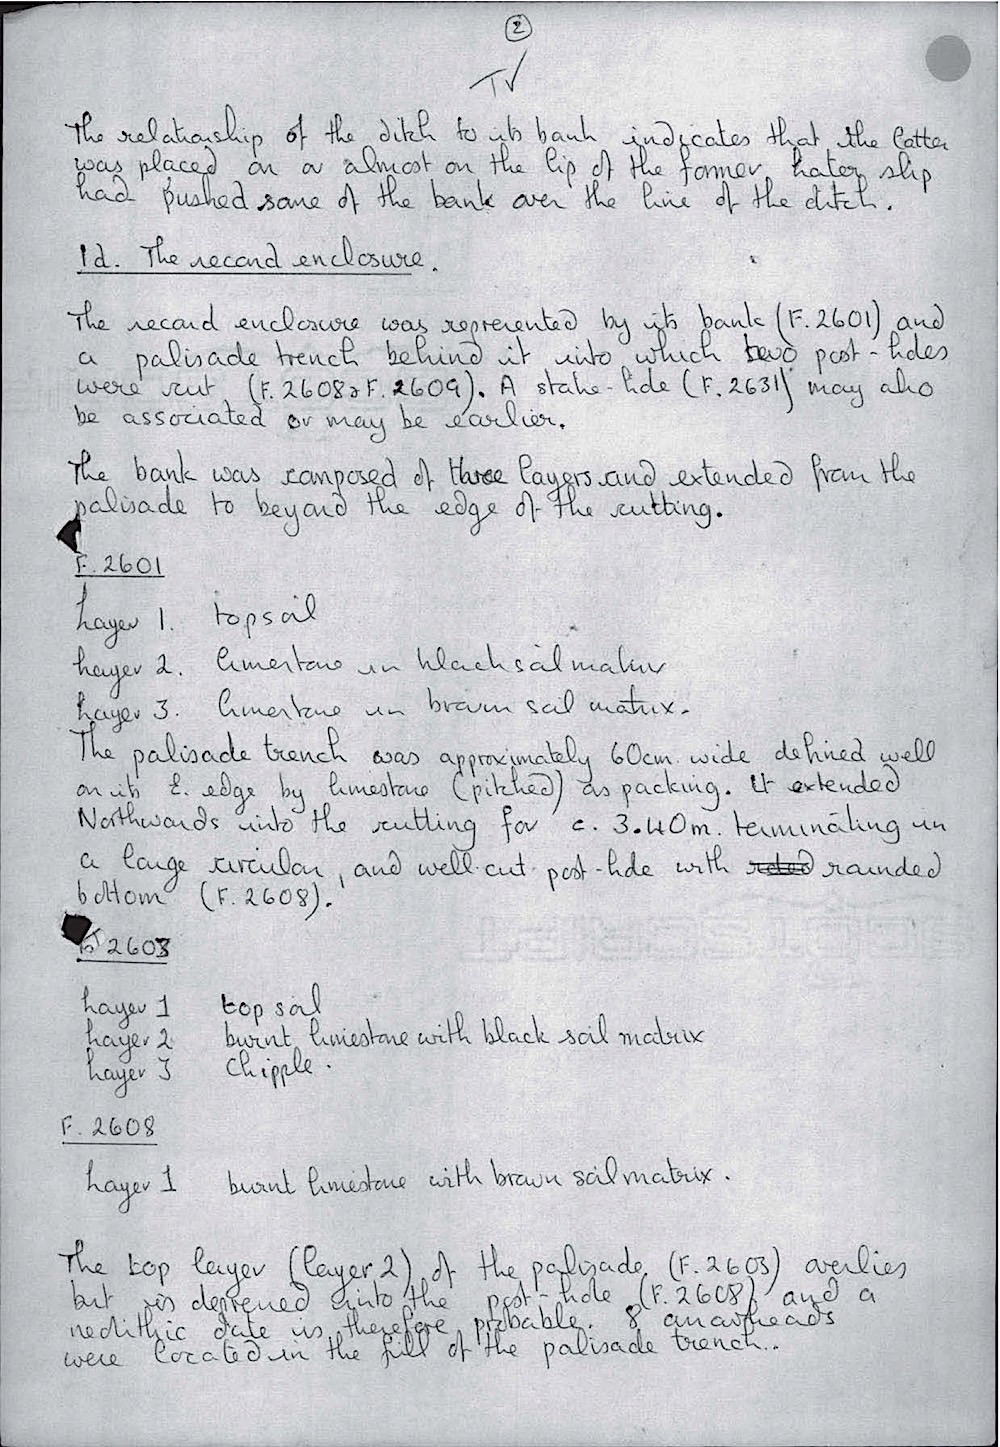 2
The relationship of the ditch to its bank indicates that the latter
was placed on or almost on the lip of the former. Later slip
had pushed some of the bank over the line of the ditch.
1d. The second enclosure.
The second enclosure was represented by its bank (F.2601) and
a palisade trench behind it into which two post-holes
were cut (F.2608 & F.2609). A stake-hole (F.2631) may also
be associated or may be earlier.
The bank was composed of three layers and extended from the
palisade to beyond the edge of the cutting.
F.2601
Layer 1. topsoil
Layer 2. limestone in black soil matrix
Layer 3. limestone in brown soil matrix.
The palisade trench was approximately 60cm. wide defined well
on its E. edge by limestone (pitched) as packing. It extended
Northwards into the cutting for c. 3.40m. terminating in
a large circular, and well-cut post-hole with rounded
bottom (F.2608).
F. 2603
Layer 1 top soil
Layer 2 burnt limestone with black soil matrix
Layer 3 Chipple.
F. 2608
Layer 1 burnt limestone with brown soil matrix.
The top layer (layer 2) of the palisade (F.2603) overlies
but is depressed into the post-hole (F.2608) and a
neolithic date is therefore probable. 8 arrowheads
were located in the fill of the palisade trench..